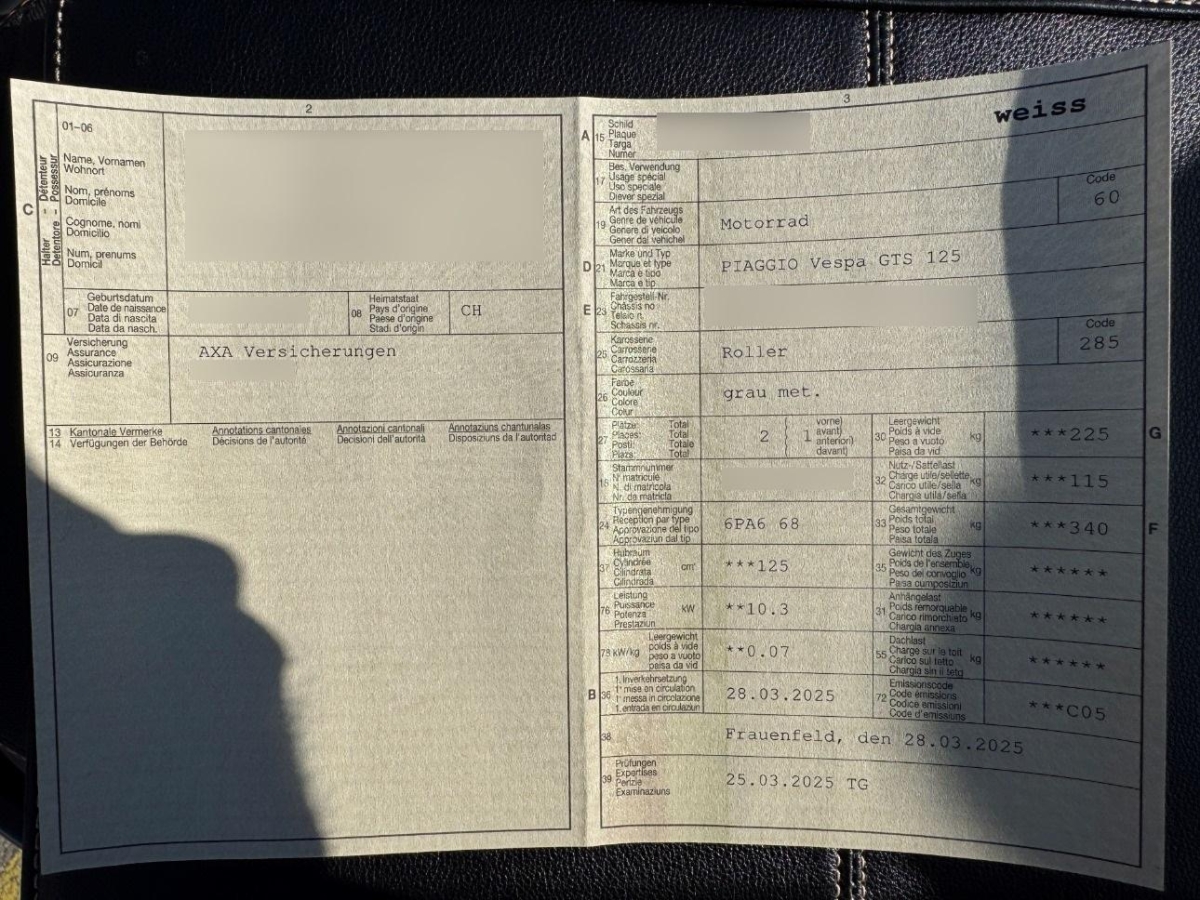 2
01-06
C
Halter - Détenteur
Detentore - Possessur
Name, Vornamen
Wohnort
Nom, prénoms
Domicile
Cognome, nomi
Domicilio
Num, prenums
Domicil
07
Geburtsdatum
Date de naissance
Data di nascita
Data da nasch.
08
Heimatstaat
Pays d'origine
Paese d'origine
Stadi d'origin
CH
09
Versicherung
Assurance
Assicurazione
Assicuranza
AXA Versicherungen
13 Kantonale Vermerke
14 Verfügungen der Behörde
Annotations cantonales
Décisions de l'autorité
Annotazioni cantonali
Decisioni dell'autorità
Annotaziuns chantunalas
Disposiziuns da l'autoritad
3
weiss
A 15
Schild
Plaque
Targa
Numer
17
Bes. Verwendung
Usage spécial
Uso speciale
Diever spezial
19
Art des Fahrzeugs
Genre de véhicule
Genere di veicolo
Gener dal vehichel
Motorrad
Code
60
D 21
Marke und Typ
Marque et type
Marca e tipo
Marca e tip
PIAGGIO Vespa GTS 125
E 23
Fahrgestell-Nr.
Châssis no
Telaio n.
Schassis nr.
25
Karosserie
Carrosserie
Carrozzeria
Carossaria
Roller
Code
285
26
Farbe
Couleur
Colore
Colur
grau met.
27
Plätze: Total
Places: Total
Posti: Totale
Plazs: Total
2
1
vorne)
avant)
anteriori)
davant)
30
Leergewicht
Poids à vide
Peso a vuoto
Paisa da vid
kg
***225
G
18
Stammnummer
N° matricule
N. di matricola
Nr. da matricla
32
Nutz-/Sattellast
Charge utile/sellette
Carico utile/sella
Chargia utila/sella
kg
***115
24
Typengenehmigung
Réception par type
Approvazione del tipo
Approvaziun dal tip
6PA6 68
33
Gesamtgewicht
Poids total
Peso totale
Paisa totala
kg
***340
F
37
Hubraum
Cylindrée
Cilindrata
Cilindrada
cm³
***125
35
Gewicht des Zuges
Poids de l'ensemble
Peso del convoglio
Paisa cumposiziun
kg
******
76
Leistung
Puissance
Potenza
Prestaziun
kW
**10.3
31
Anhängelast
Poids remorquable
Carico rimorchiato
Chargia annexa
kg
******
78 kW/kg
Leergewicht
poids à vide
peso a vuoto
paisa da vid
**0.07
55
Dachlast
Charge sur le toit
Carico sul tetto
Chargia sin il tetg
kg
******
B 36
1. Inverkehrsetzung
1re mise en circulation
1a messa in circolazione
1. entrada en circulaziun
28.03.2025
72
Emissionscode
Code émissions
Codice emissioni
Code d'emissiuns
***C05
38
Frauenfeld, den 28.03.2025
39
Prüfungen
Expertises
Perizie
Examinaziuns
25.03.2025 TG